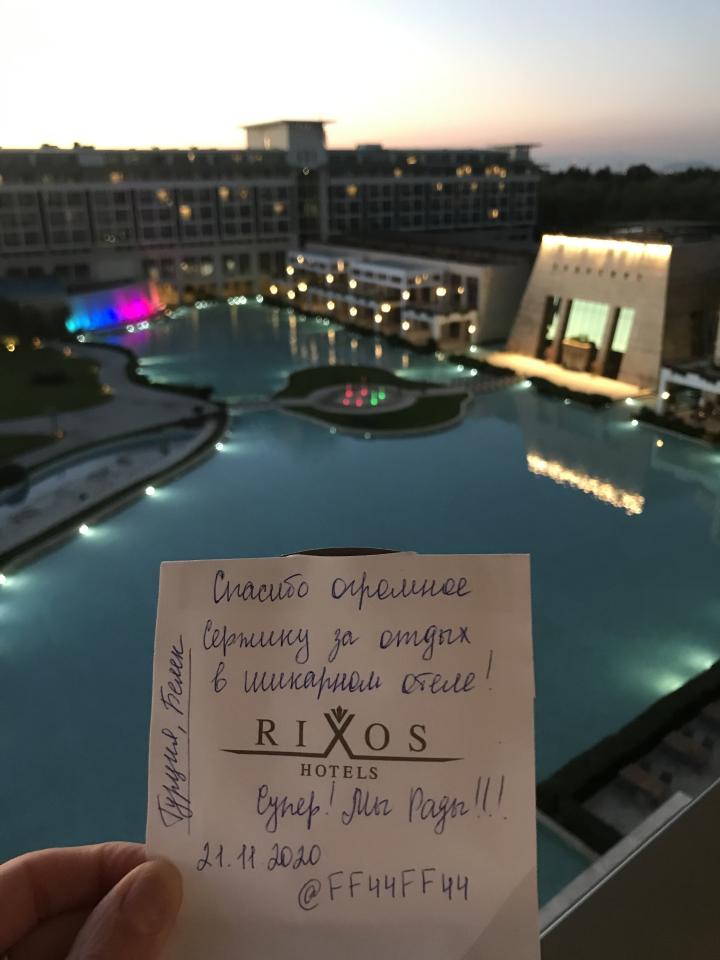 Спасибо огромное
Сержику за отдых
в шикарном отеле!
Турция, Белек
RIXOS
HOTELS
Супер! Мы Рады!!!
21.11.2020
@FF44FF44